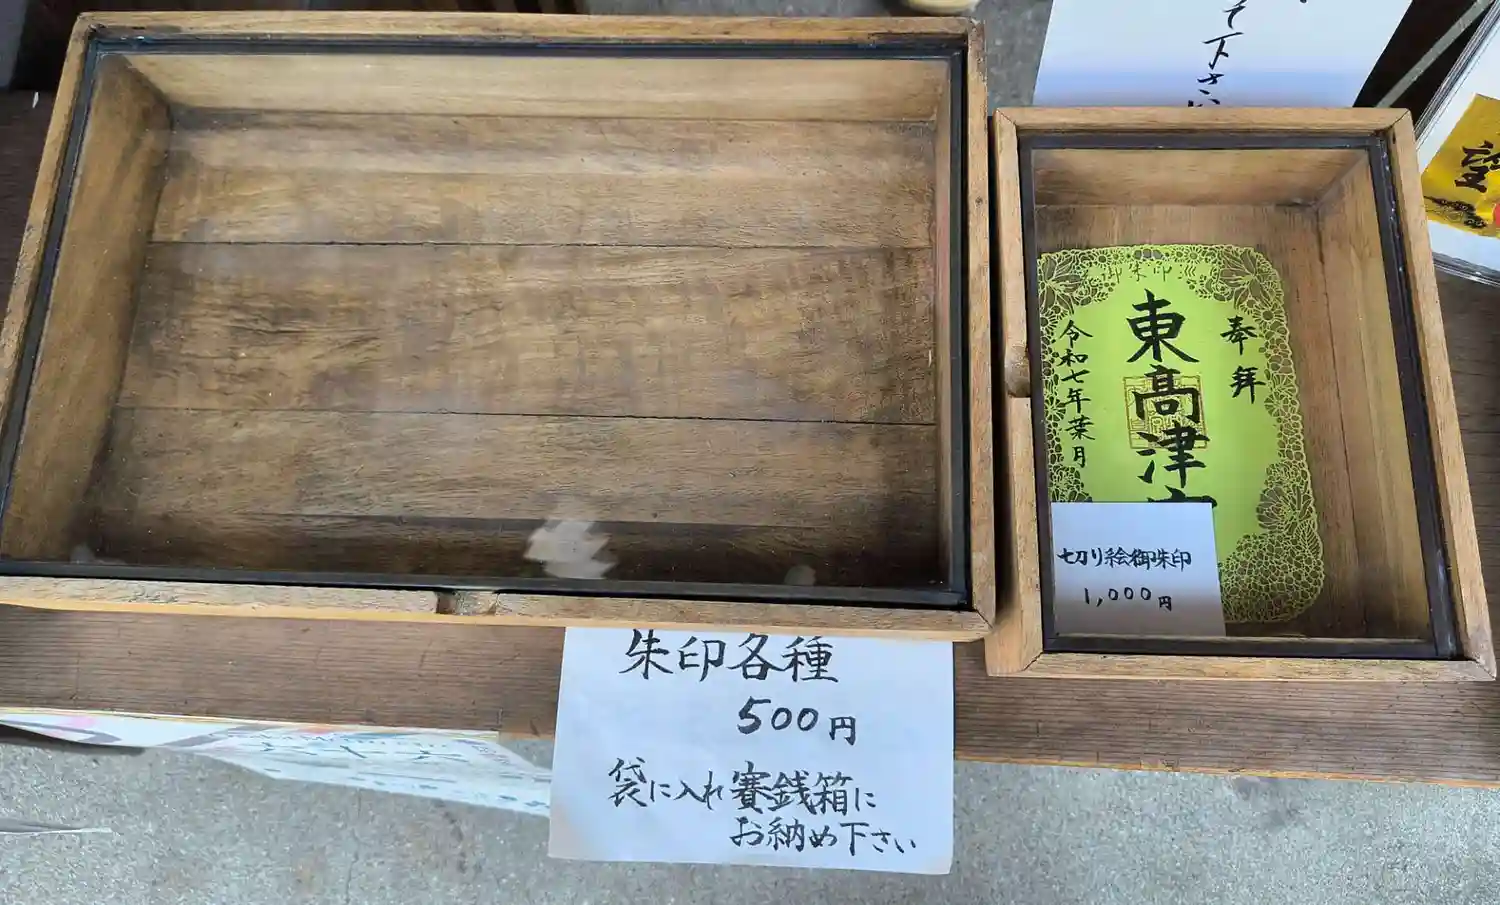 て下さい
奉拝
東高津宮
令和七年葉月
切り絵御朱印
1,000円
朱印各種
500円
袋に入れ賽銭箱に
お納め下さい